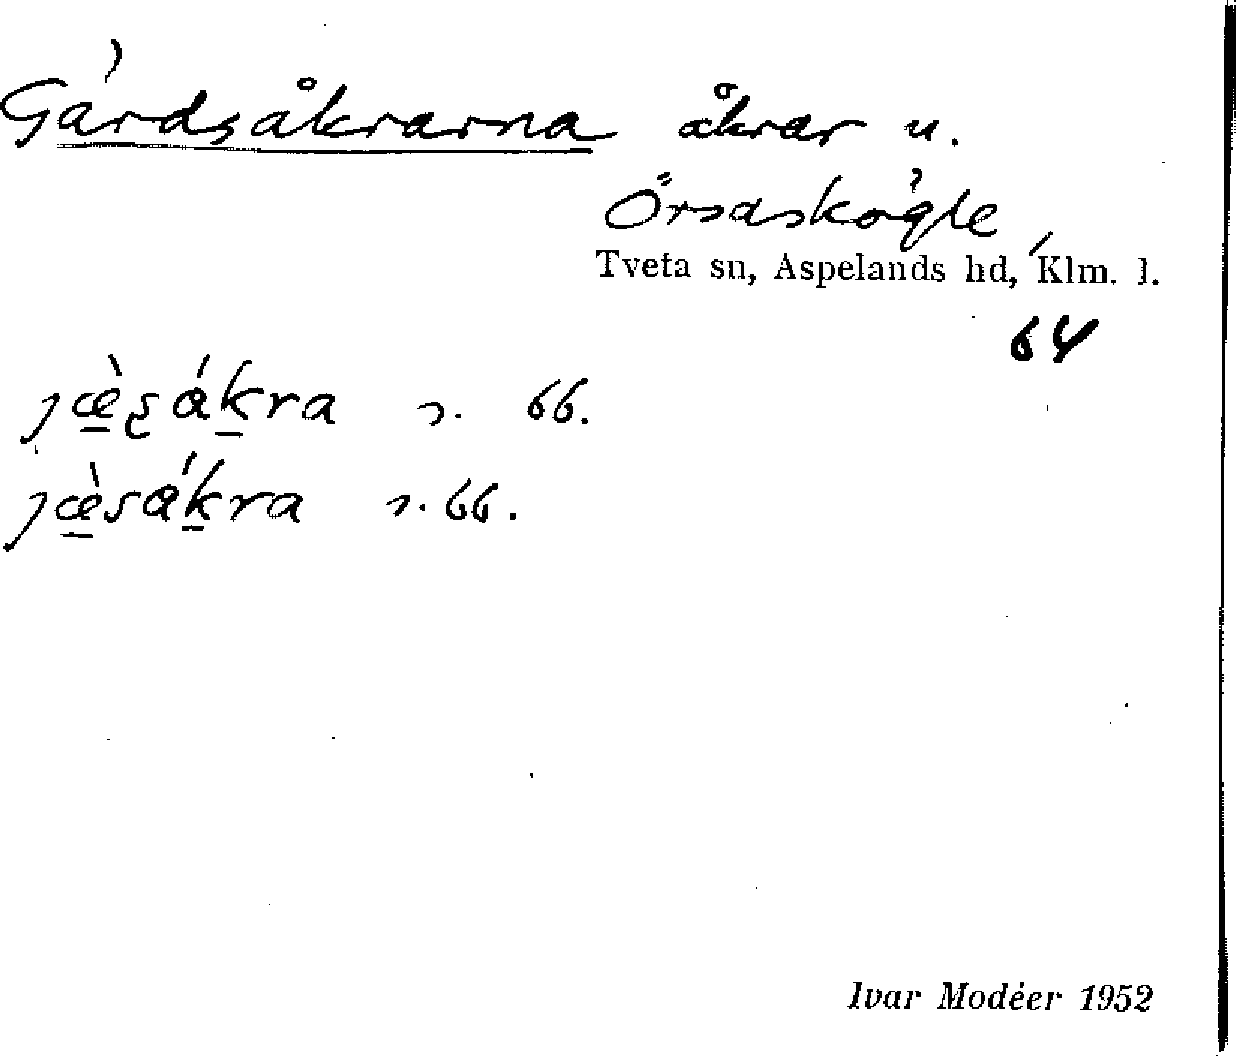 Gärdsåkrarna åkrar u.
Örsaskögle
Tveta sn, Aspelands hd, Klm. l.
64
jæ̀ʂákra s. 66.
jæ̀sákra s. 66.
Ivar Modéer 1952